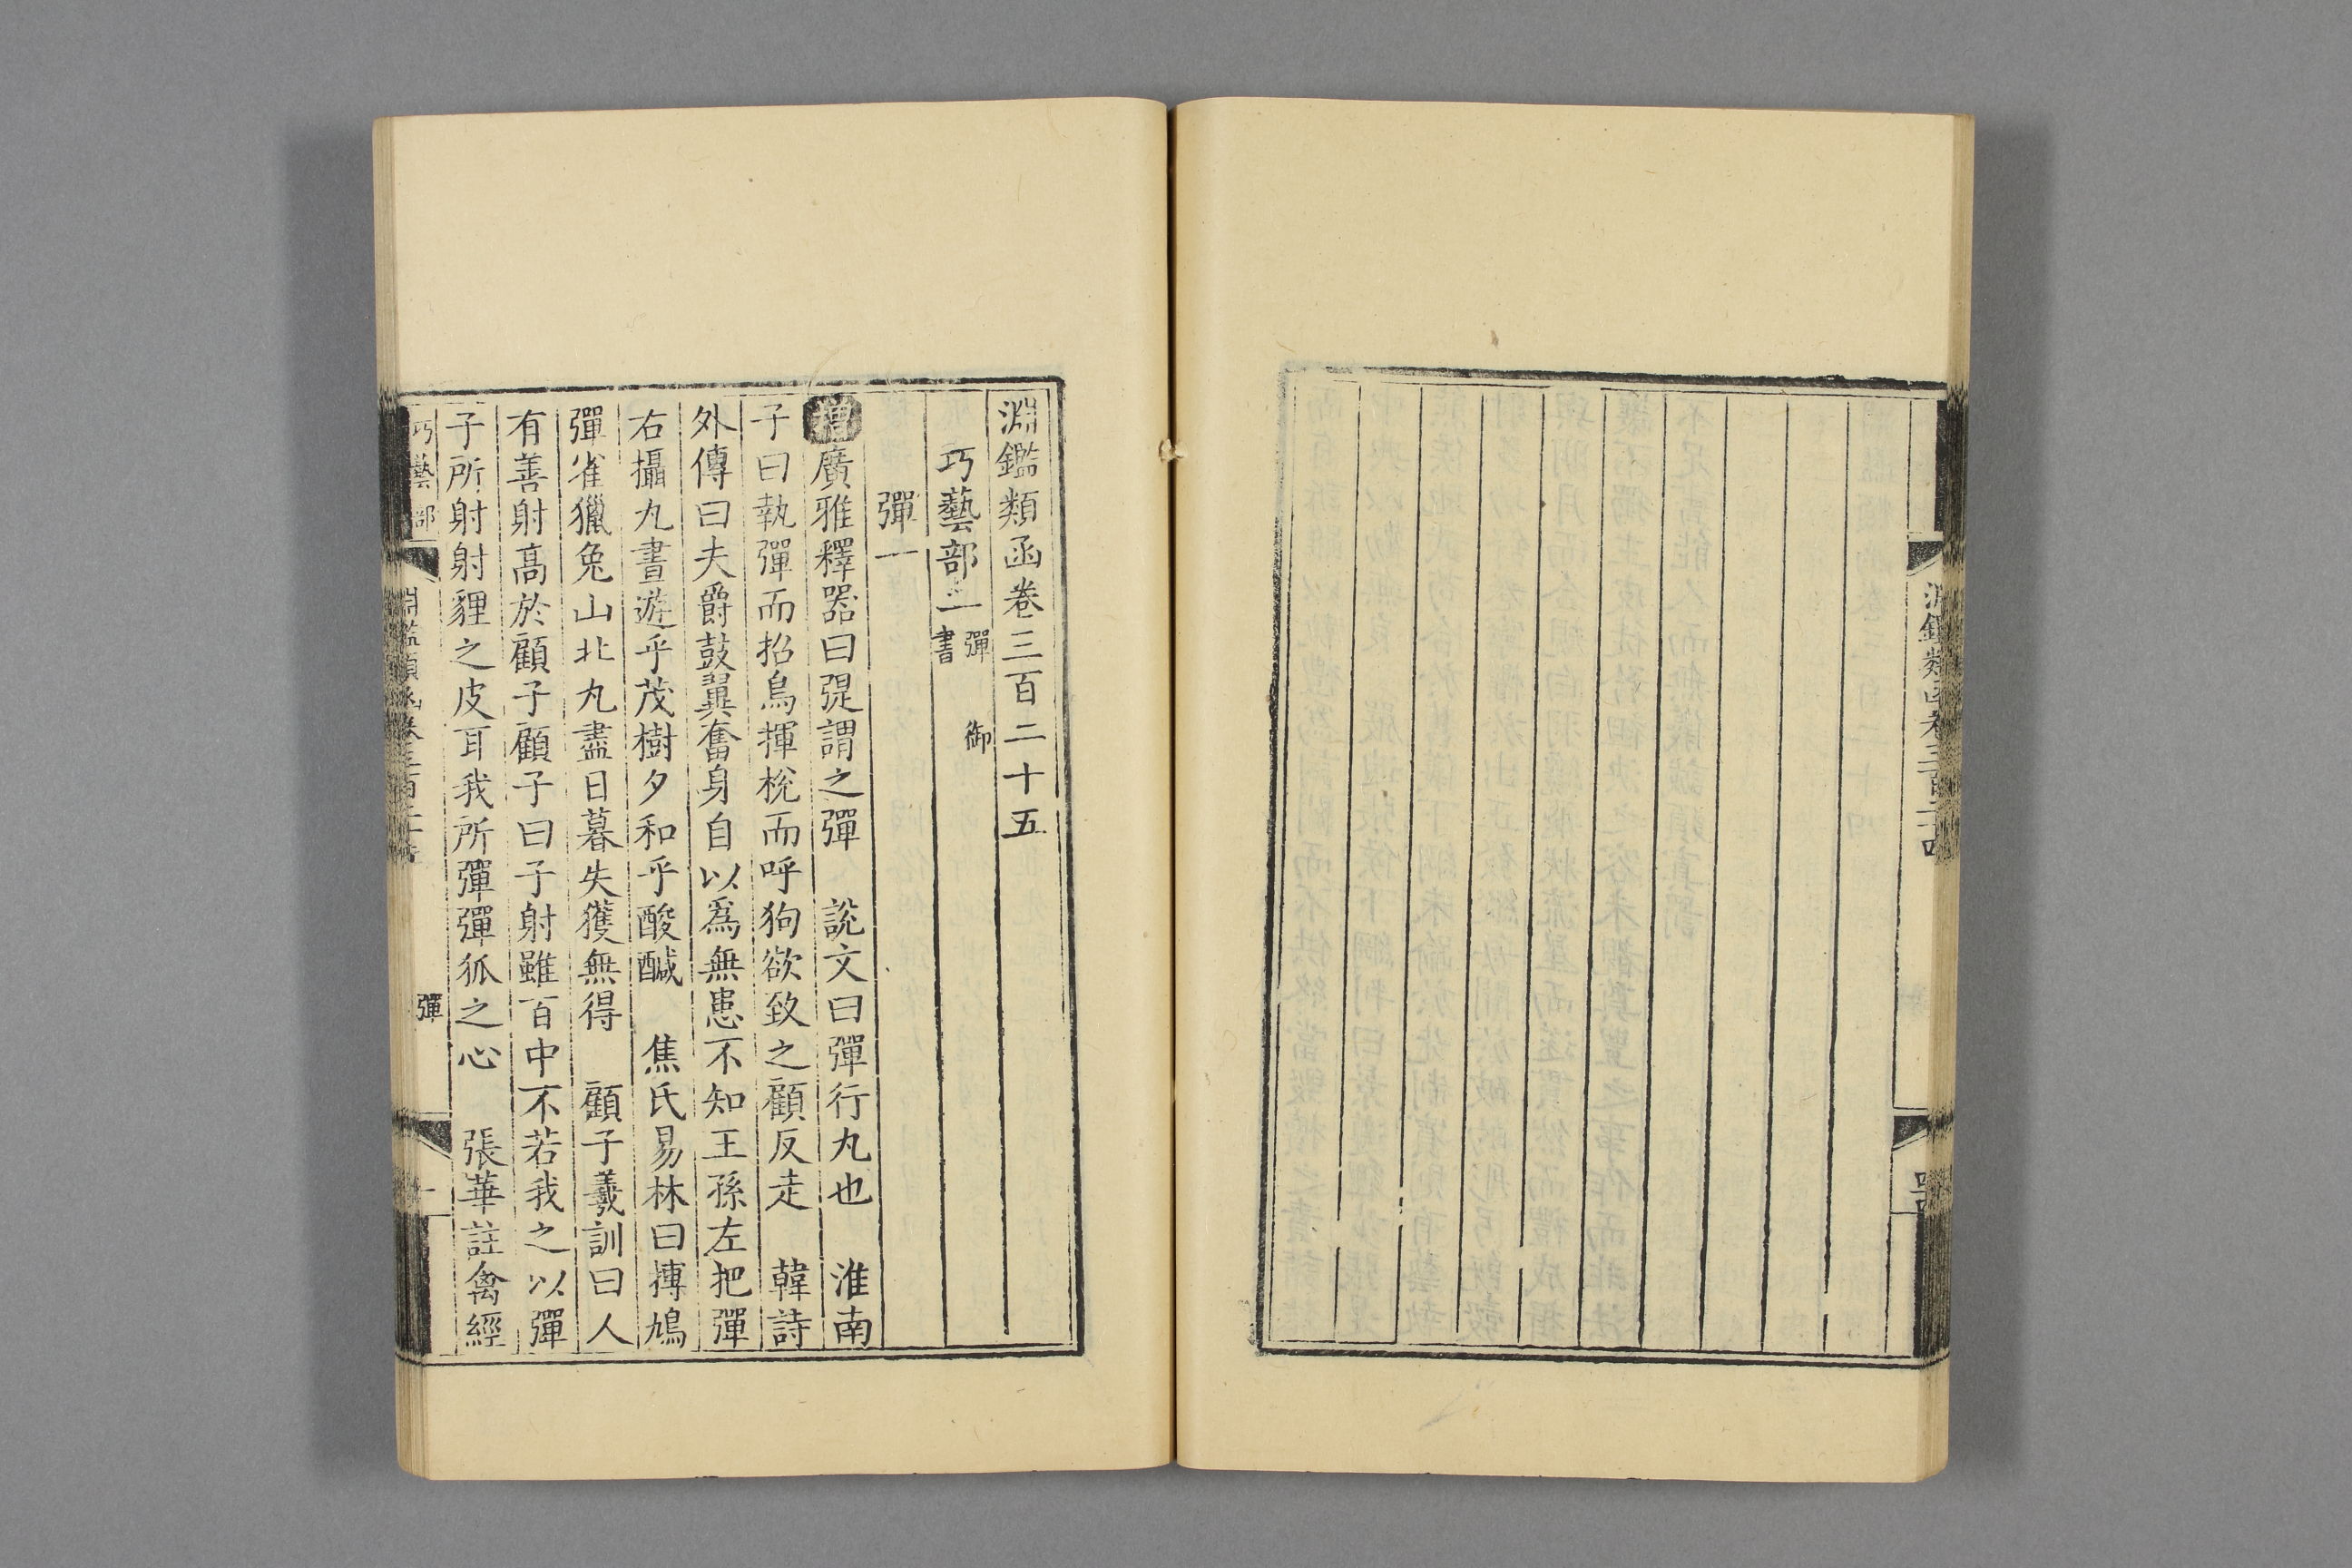 淵鑑類函卷三百二十四
淵鑑類函卷三百二十五
巧藝部二 彈 御
書
彈一
增廣雅釋器曰弫謂之彈 說文曰彈行丸也 淮南
子曰執彈而招鳥揮梲而呼狗欲致之顧反走 韓詩
外傳曰夫爵鼓翼奮身自以爲無患不知王孫左把彈
右攝丸晝遊乎茂樹夕和乎酸醎 焦氏易林曰摶鳩
彈雀獵兔山北丸盡日暮失獲無得 顧子義訓曰人
有善射髙於顧子顧子曰子射雖百中不若我之以彈
子所射射貍之皮耳我所彈彈狐之心 張華註禽經
巧藝部 淵鑑類函卷三百二十五 彈 一